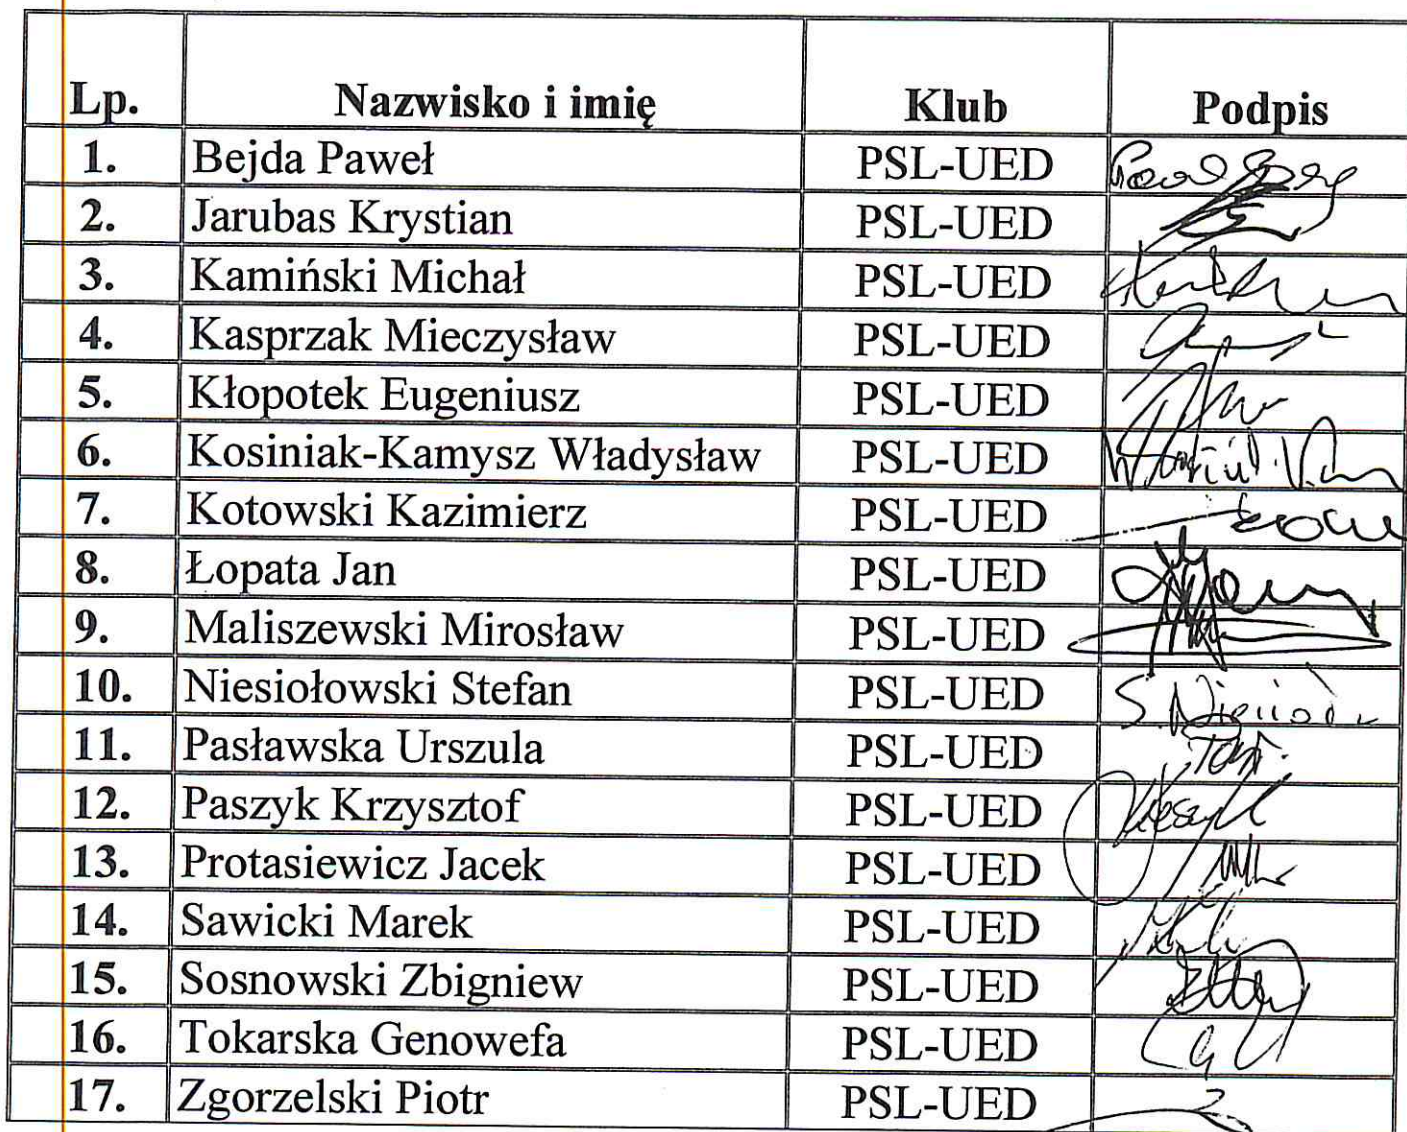 Lp. Nazwisko i imię Klub Podpis
1. Bejda Paweł PSL-UED
2. Jarubas Krystian PSL-UED
3. Kamiński Michał PSL-UED
4. Kasprzak Mieczysław PSL-UED
5. Kłopotek Eugeniusz PSL-UED
6. Kosiniak-Kamysz Władysław PSL-UED
7. Kotowski Kazimierz PSL-UED
8. Łopata Jan PSL-UED
9. Maliszewski Mirosław PSL-UED
10. Niesiołowski Stefan PSL-UED
11. Pasławska Urszula PSL-UED
12. Paszyk Krzysztof PSL-UED
13. Protasiewicz Jacek PSL-UED
14. Sawicki Marek PSL-UED
15. Sosnowski Zbigniew PSL-UED
16. Tokarska Genowefa PSL-UED
17. Zgorzelski Piotr PSL-UED